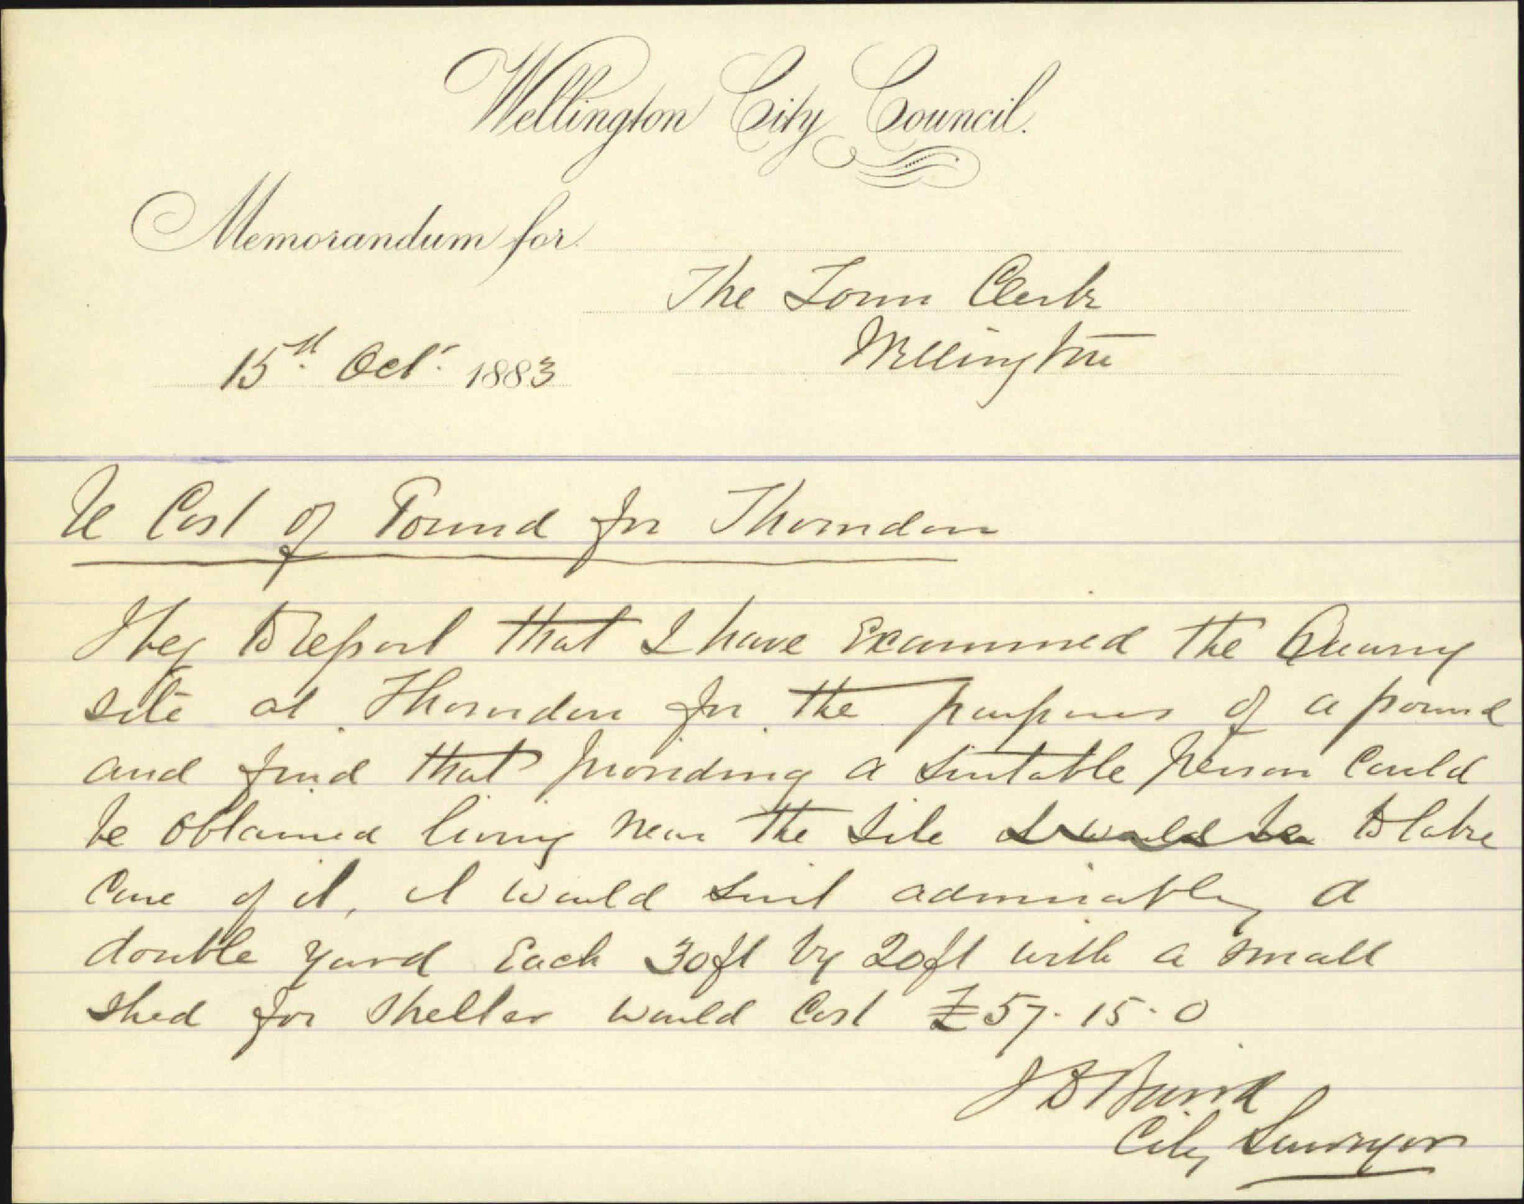 Wellington City Council.
Memorandum for
The Town Clerk
Wellington
15th Oct. 1883
Re Cost of Pound for Thorndon
I beg to report that I have Examined the Quarry
site at Thorndon for the purposes of a pound
and find that providing a suitable person could
be obtained living near the site I would be to take
care of it, it would suit admirably a
double yard Each 30ft by 20ft with a small
shed for shelter would cost £57.15.0
J D Baird
City Surveyor